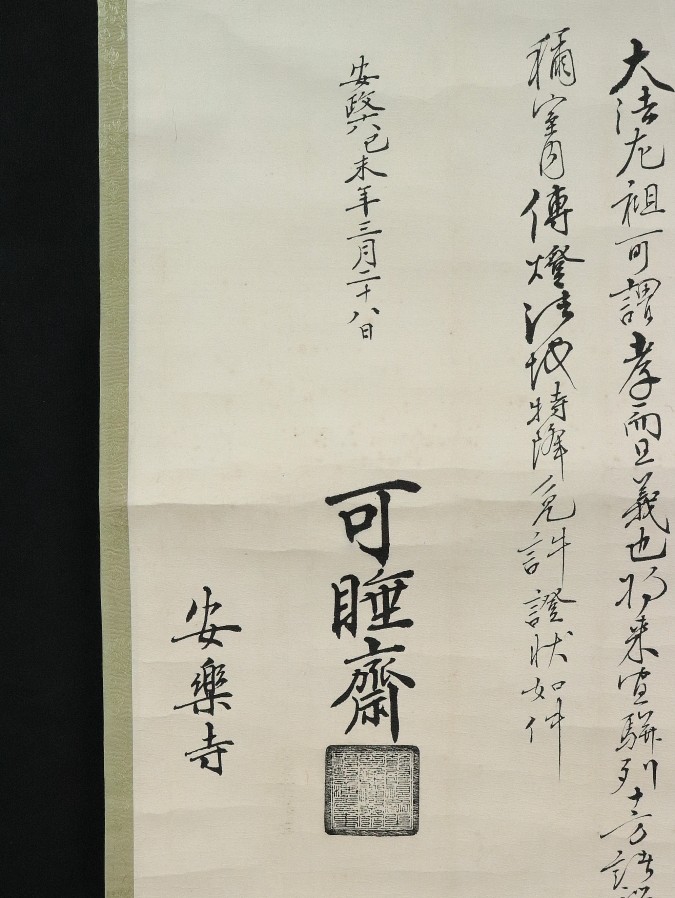 大法龙祖可謂孝而且義也将来宜駢列十方諸
稱室内傳燈法地特降免許證状如件
安政六己未年三月二十八日
可睡齋
安樂寺